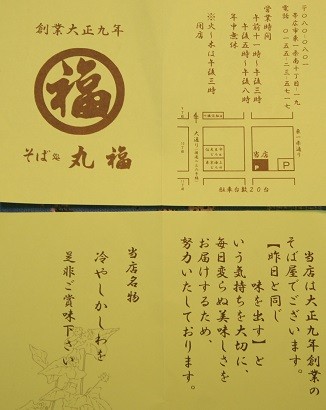 創業大正九年
福
そば処 丸福
〒080-0801
帯広市東一条南十丁目一九
電話 0155-23-5717
営業時間
午前十一時〜午後三時
午後五時〜午後八時
年中無休
※火〜木は午後三時
閉店
東一条通り
大通り
当店
P
駐車台数20台
当店は大正九年創業の
そば屋でございます。
【昨日と同じ
味を出す】と
いう気持ちを大切に、
毎日変らぬ美味しさを
お届けするため、
努力いたしております。
当店名物
冷やしかしわを
是非ご賞味下さい